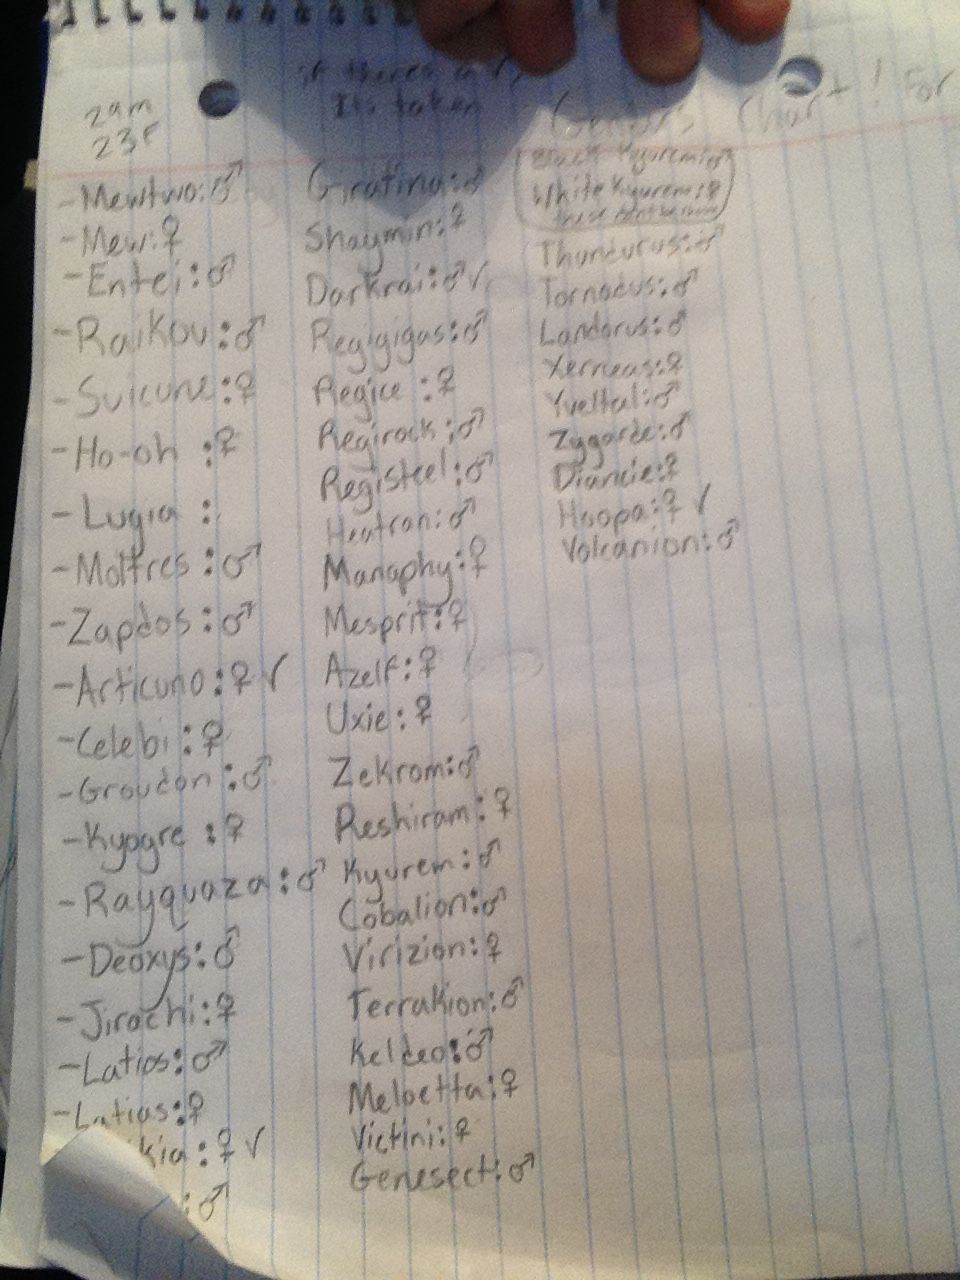 if theres a √,
Its taken
Genders Chart! For
29m
23F
-Mewtwo:♂
-Mew:♀
-Entei:♂
-Raikou:♂
-Suicune:♀
-Ho-oh :♀
-Lugia :
-Moltres :♂
-Zapdos:♂
-Articuno:♀√
-Celebi:♀
-Groudon:♂
-Kyogre :♀
-Rayquaza:♂
-Deoxys:♂
-Jirachi:♀
-Latios:♂
-Latias:♀
kia:♀√
:♂
Giratina:♂
Shaymin:♀
Darkrai:♂√
Regigigas:♂
Regice :♀
Regirock:♂
Registeel:♂
Heatran:♂
Manaphy:♀
Mesprit:♀
Azelf:♀
Uxie:♀
Zekrom:♂
Reshiram:♀
Kyurem:♂
Cobalion:♂
Virizion:♀
Terrakion:♂
Keldeo:♂
Meloetta:♀
Victini:♀
Genesect:♂
Black Kyurem:♂
White Kyurem:♀
these
Thundurus:♂
Tornadus:♂
Landorus:♂
Xerneas:♀
Yveltal:♂
Zygarde:♂
Diancie:♀
Hoopa:♀√
Volcanion:♂